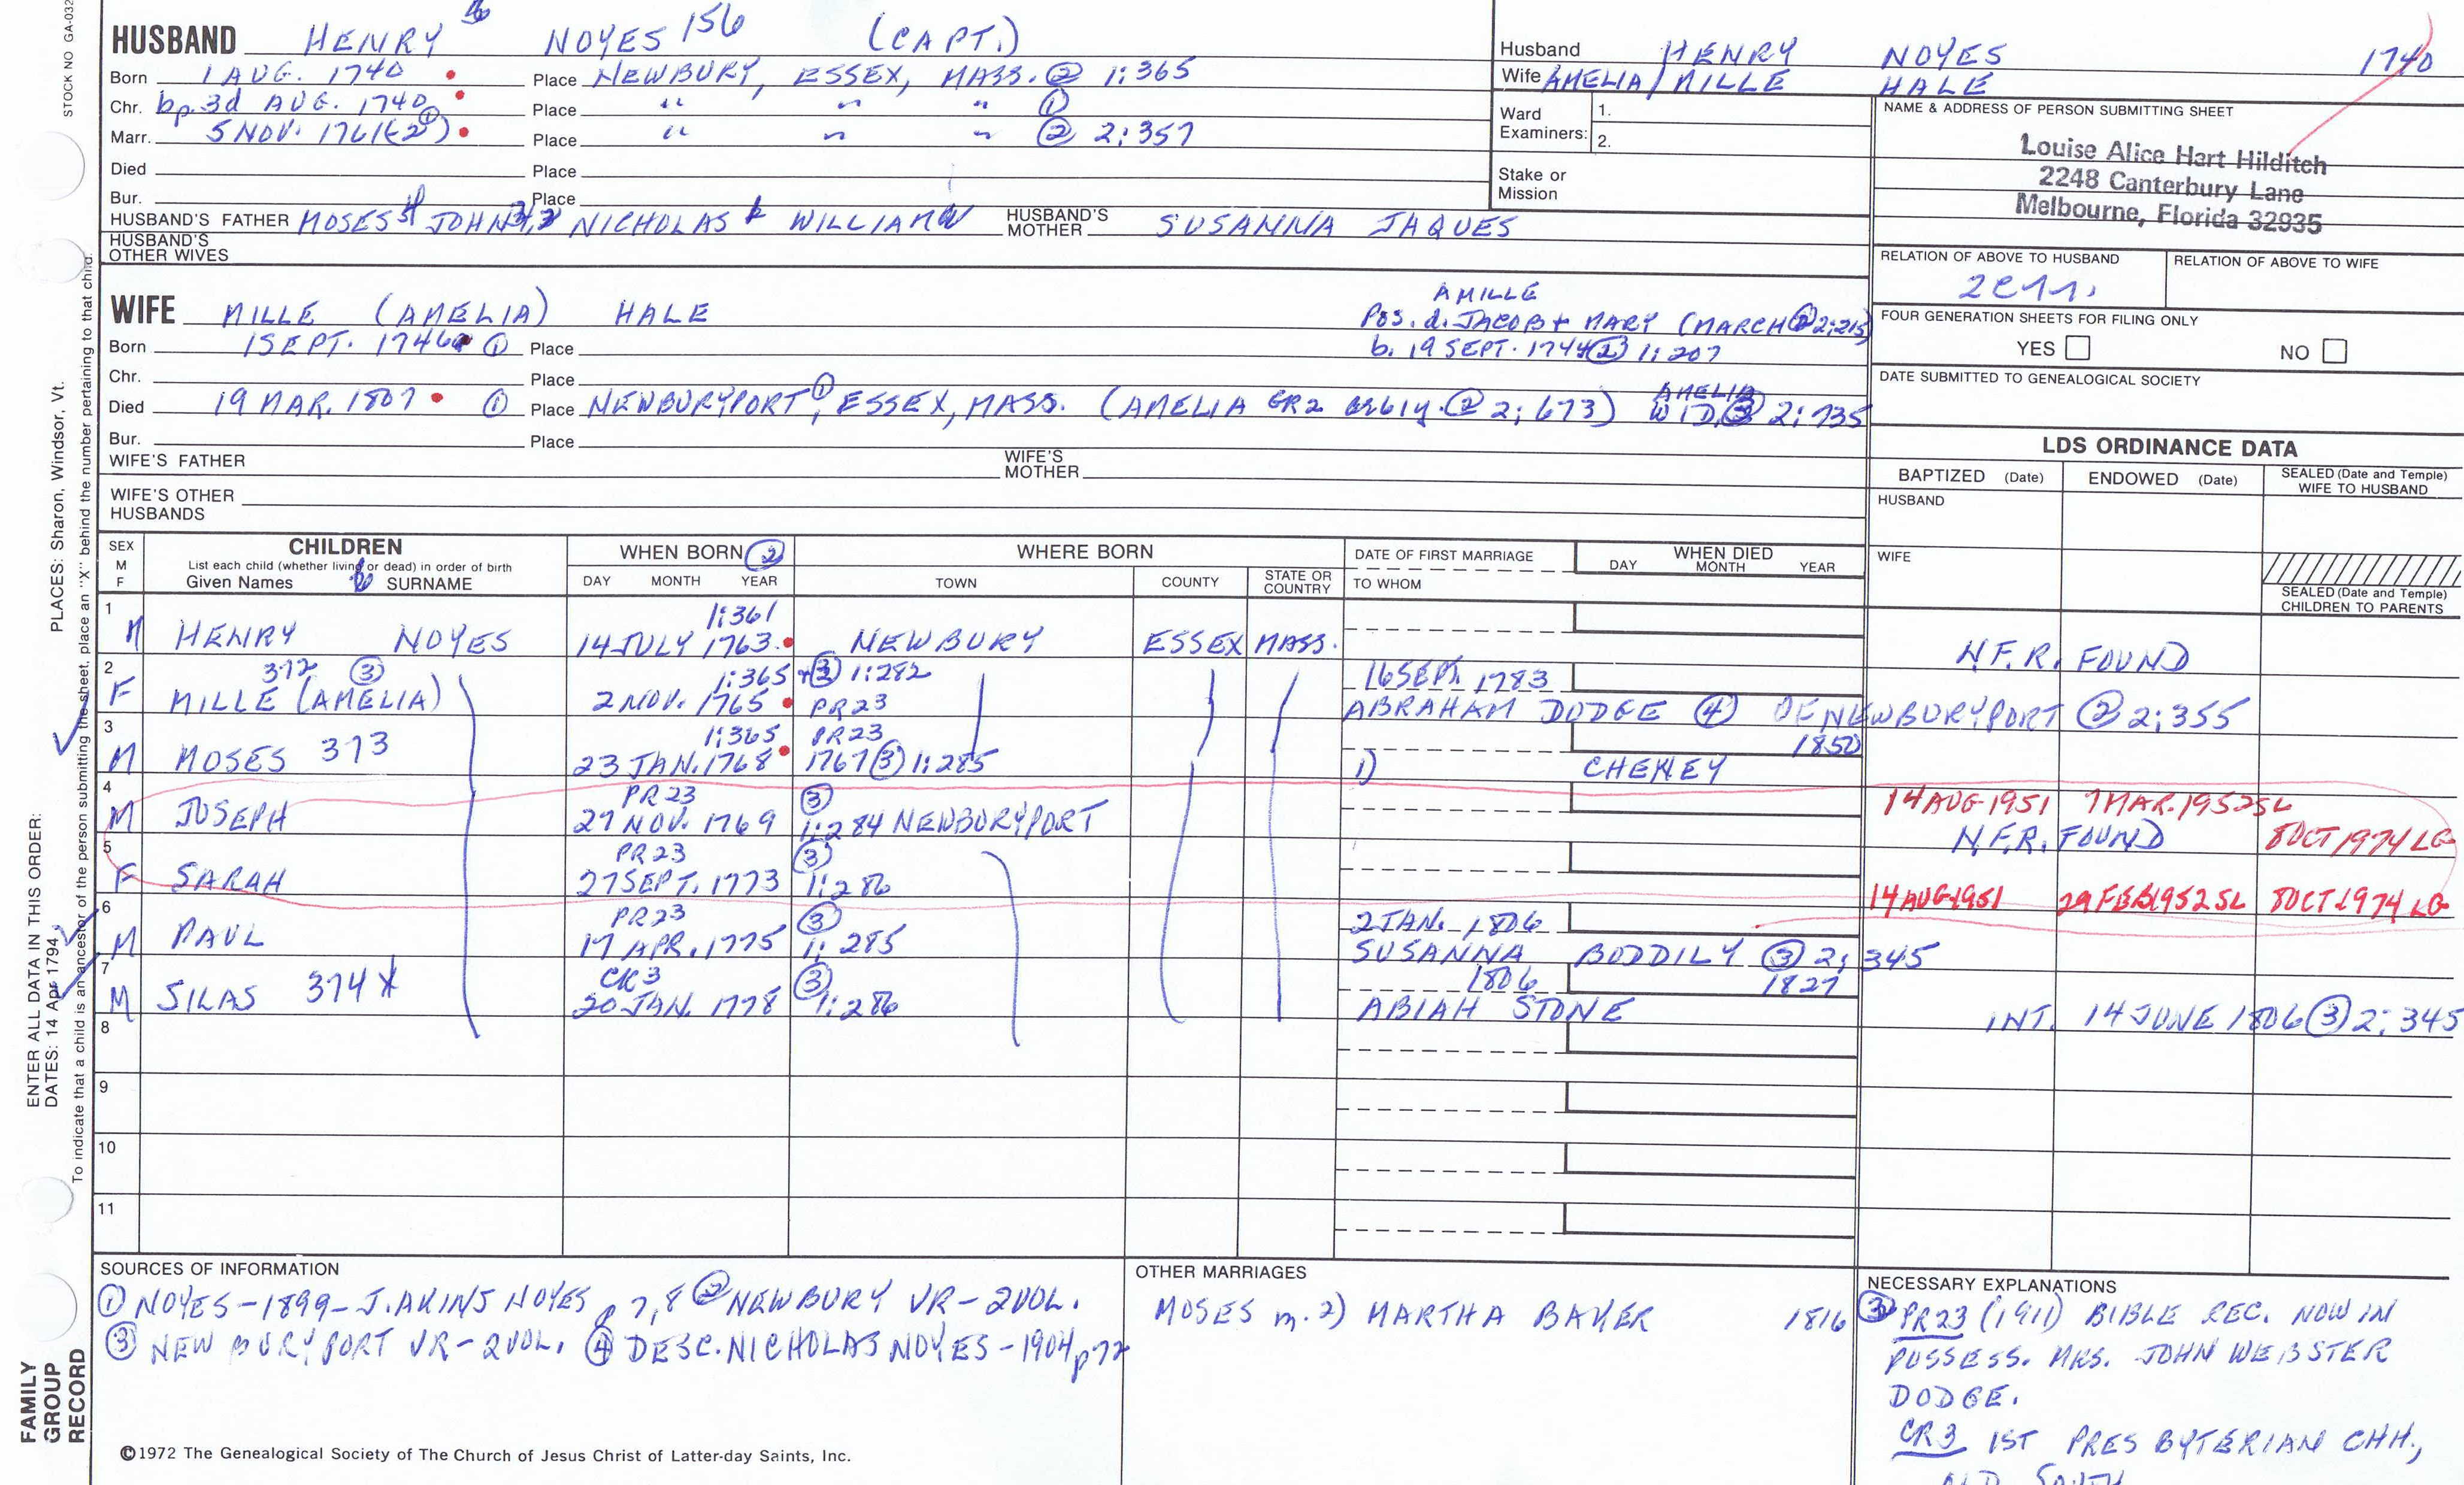 STOCK NO GA-032
HUSBAND HENRY NOYES 156 (CAPT.)
Born 1 AUG. 1740 Place NEWBURY, ESSEX, MASS. ② 1:365
Chr. bp. 3d AUG. 1740 Place " " " ①
Marr. 5 NOV. 1761 (-2①) Place " " " ② 2:357
Died Place
Bur. Place
HUSBAND'S FATHER MOSES JOHN NICHOLAS WILLIAM HUSBAND'S MOTHER SUSANNA JAQUES
HUSBAND'S OTHER WIVES
Husband HENRY NOYES 1740
Wife AMELIA/MILLE HALE
Ward Examiners: 1.
2.
Stake or Mission
NAME & ADDRESS OF PERSON SUBMITTING SHEET
Louise Alice Hart Hilditch
2248 Canterbury Lane
Melbourne, Florida 32935
RELATION OF ABOVE TO HUSBAND RELATION OF ABOVE TO WIFE
FOUR GENERATION SHEETS FOR FILING ONLY
YES NO
DATE SUBMITTED TO GENEALOGICAL SOCIETY
WIFE MILLE (AMELIA) HALE
AMILLE
Pos. d. JACOB + MARY (MARCH ② 2:215)
b. 19 SEPT. 1744 ② 1:207
Born 1 SEPT. 1746 ① Place
Chr. Place
Died 19 MAR. 1807 ① Place NEWBURYPORT①, ESSEX, MASS. (AMELIA GR2 ② 2:673) AMELIA WID. ③ 2:735
Bur. Place
WIFE'S FATHER WIFE'S MOTHER
WIFE'S OTHER HUSBANDS
LDS ORDINANCE DATA
BAPTIZED (Date) ENDOWED (Date) SEALED (Date and Temple) WIFE TO HUSBAND
HUSBAND
WIFE
SEALED (Date and Temple) CHILDREN TO PARENTS
SEX M F CHILDREN List each child (whether living or dead) in order of birth Given Names SURNAME
WHEN BORN ② DAY MONTH YEAR
WHERE BORN TOWN COUNTY STATE OR COUNTRY
DATE OF FIRST MARRIAGE TO WHOM
WHEN DIED DAY MONTH YEAR
1 M HENRY NOYES 1:361 14 JULY 1763 NEWBURY ESSEX MASS. N.F.R. FOUND
2 F 372 ③ MILLE (AMELIA) 1:365 + ③ 1:282 2 NOV. 1765 PR23 16 SEPT. 1783 ABRAHAM DODGE ④ OF NEWBURYPORT ② 2:355
3 M MOSES 373 1:365 PR23 23 JAN. 1768 1767 ③ 1:285 1850 1) CHENEY
4 M JOSEPH PR23 27 NOV. 1769 ③ 1:284 NEWBURYPORT 14 AUG 1951 7 MAR. 1952 SL
N.F.R. FOUND 8 OCT 1974 LG
5 F SARAH PR23 27 SEPT. 1773 ③ 1:286 14 AUG 1951 29 FEB 1952 SL 8 OCT 1974 LG
6 M PAUL PR23 17 APR. 1775 ③ 1:285 2 JAN. 1806 SUSANNA BODDILY ③ 2:345
7 M SILAS 374 X CR3 20 JAN. 1778 ③ 1:286 1806 1827 ABIAH STONE INT. 14 JUNE 1806 ③ 2:345
8
9
10
11
SOURCES OF INFORMATION
① NOYES-1899-J. AKINS NOYES p 7,8 ② NEWBURY VR-2 VOL.
③ NEWBURYPORT VR-2 VOL. ④ DESC. NICHOLAS NOYES-1904 p 72
OTHER MARRIAGES
MOSES m. 2) MARTHA BAKER 1816
NECESSARY EXPLANATIONS
③ PR23 (1911) BIBLE REC. NOW IN
POSSESS. MRS. JOHN WEBSTER
DODGE.
CR3 1ST PRESBYTERIAN CHH.,
OLD SOUTH
©1972 The Genealogical Society of The Church of Jesus Christ of Latter-day Saints, Inc.
FAMILY GROUP RECORD
ENTER ALL DATA IN THIS ORDER:
DATES: 14 Apr 1794
PLACES: Sharon, Windsor, Vt.
To indicate that a child is an ancestor of the person submitting the sheet, place an "X" behind the number pertaining to that child.